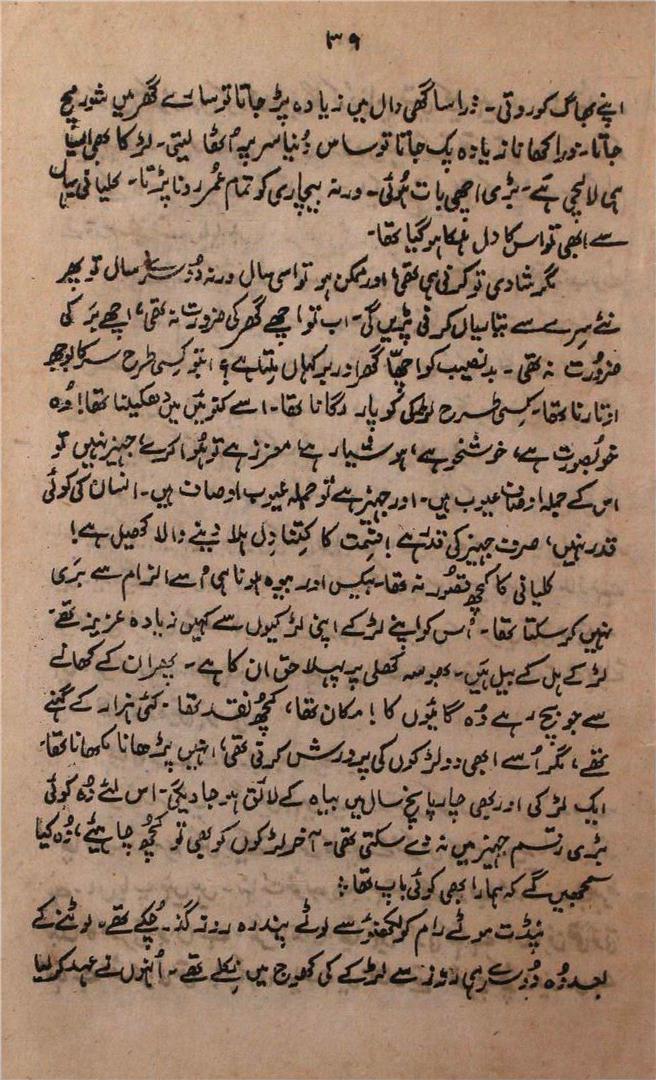 ۳۹
اپنے بھاگ کو روتی۔ ذرا سا گھی دال میں زیادہ پڑ جاتا تو سارے گھر میں شور مچ
جاتا۔ ذرا کھانا زیادہ پک جاتا تو ساس دُنیا سر پہ اُٹھا لیتی۔ لڑکا بھی ایسا
ہی لالچی ہَے۔ بڑی اچھی بات ہُوئی۔ ورنہ بیچاری کو تمام عُمر رونا پڑتا۔ کلیانی یہاں
سے اُٹھی تو اس کا دل ہلکا ہو گیا تھا۔
مگر شادی تو کرنی ہی تھی، اور ممکن ہو تو اسی سال ورنہ دُوسرے سال تو پھر
نئے سِرے سے تیاریاں کرنی پڑیں گی۔ اب تو اچھے گھر کی ضرورت نہ تھی، اچھے بَر کی
ضرورُت نہ تھی۔ بدنصیب کو اچھّا گھر اور بر کہاں مِلتا ہے؟ اب تو کِسی طرح سر کا بوجھ
اُتارنا تھا۔ کِسی طرح لڑکی کو پار لگانا تھا۔ اسے کنوئیں میں دھکیلنا تھا! وُہ
خوبُصورت ہے، خوشخو ہے، ہوشیار ہے، معزز ہے تو ہُوا کرے، جہیز نہیں تو
اس کے جملہ اوصاف عیوب ہیں۔ اور جہیز ہے تو جملہ عیوب اوصاف ہیں۔ انسان کی کوئی
قدر نہیں، صرف جہیز کی قدر ہے! قِسمت کا کِتنا دِل ہلا دینے والا کھیل ہے!
کلیانی کا کچھ قصُور نہ تھا۔ بیکس اور بیوہ ہونا ہی اُسے الزام سے بَری
نہیں کر سکتا تھا۔ اُس کو اپنے لڑکے اپنی لڑکیوں سے کہیں زیادہ عزیز تھے۔
لڑکے ہل کے بیل ہَیں۔ بھوسہ کھلی پر پہلا حق ان کا ہے۔ پھر ان کے کھانے
سے جو بچ رہے وُہ گائیوں کا! مکان تھا، کچھُ نقد تھا۔ کئی ہزار کے گہنے
تھے، مگر اُسے ابھی دو لڑکوں کی پرورش کرنی تھی، انہیں پڑھانا لکھانا تھا۔
ایک لڑکی اور بھی چار پانچ سال میں بیاہ کے لائق ہو جاویگی۔ اس لئے وُہ کوئی
بڑی رقم جہیز میں نہ دے سکتی تھی۔ آخر لڑکوں کو بھی تو کچھُ چاہیئے، وُہ کیا
سمجھیں گے کہ ہمارا بھی کوئی باپ تھا۔
پنڈت موٹے رام کو لکھنؤ سے لوٹے پندرہ روز گذر چُکے تھے۔ لوٹنے کے
بعد وُہ دُوسرے ہی روز سے لڑکے کی کھوج میں نِکلے تھے۔ اُنہوں نے عہد کر لیا